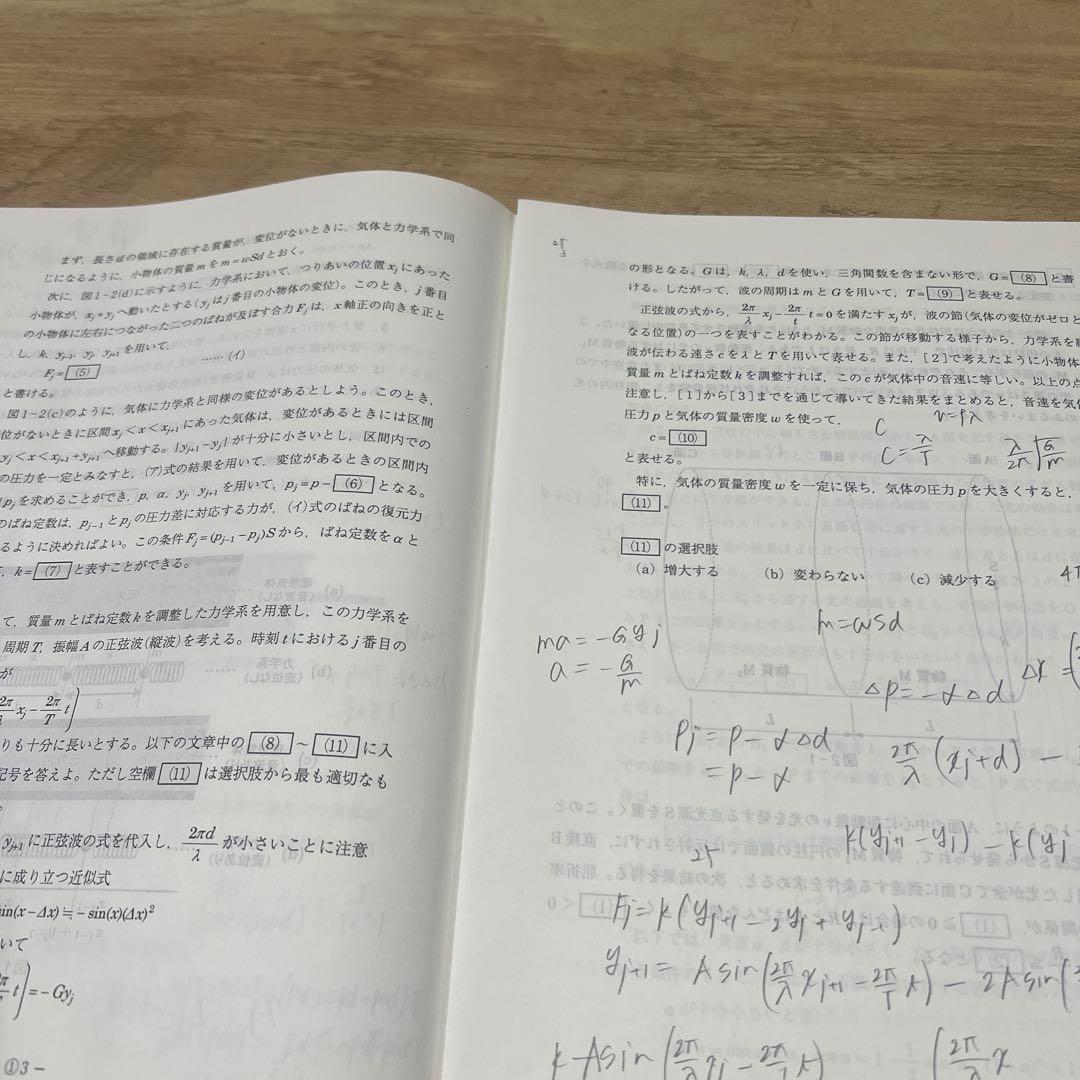 まず，長さdの領域に存在する質量が，変位がないときに，気体と力学系で同
じになるように，小物体の質量mをm=wSdとおく。
次に，図1-2(d)に示すように，力学系において，つりあいの位置xjにあった
小物体が，xj+yjへ動いたとする(yjはj番目の小物体の変位)。このとき，j番目
の小物体に左右につながった二つのばねが及ぼす合力Fjは，x軸正の向きを正と
し，k，yj-1，yj，yj+1を用いて，
Fj= (5) ……(イ)
と書ける。
図1-2(c)のように，気体に力学系と同様の変位があるとしよう。このとき，
位がないときに区間xj<x<xj+1にあった気体は，変位があるときには区間
yj<x<xj+1+yj+1へ移動する。|yj+1-yj|が十分に小さいとし，区間内での
の圧力を一定とみなすと，(ア)式の結果を用いて，変位があるときの区間内
pjを求めることができ，p，α，yj，yj+1を用いて，pj=p- (6) となる。
のばね定数は，pj-1とpjの圧力差に対応する力が，(イ)式のばねの復元力
るように決めればよい。この条件Fj=(pj-1-pj)Sから，ばね定数をαと
，k= (7) と表すことができる。
て，質量mとばね定数kを調整した力学系を用意し，この力学系を
周期T，振幅Aの正弦波(縦波)を考える。時刻tにおけるj番目の
が
2π/λ xj - 2π/T t)
りも十分に長いとする。以下の文章中の (8) ～ (11) に入
記号を答えよ。ただし空欄 (11) は選択肢から最も適切なも
。
yj+1に正弦波の式を代入し，2πd/λが小さいことに注意
に成り立つ近似式
in(x-Δx)≒-sin(x)(Δx)²
いて
t)=-Gyj
①3-
の形となる。Gは，k，λ，dを使い，三角関数を含まない形で，G= (8) と書
ける。したがって，波の周期はmとGを用いて，T= (9) と表せる。
正弦波の式から，2π/λ xj - 2π/t t=0を満たすxjが，波の節(気体の変位がゼロと
なる位置)の一つを表すことがわかる。この節が移動する様子から，力学系を
波が伝わる速さcをλとTを用いて表せる。また，[2]で考えたように小物体
質量mとばね定数kを調整すれば，このcが気体中の音速に等しい。以上の点
注意し，[1]から[3]までを通じて導いてきた結果をまとめると，音速を気
圧力pと気体の質量密度wを使って，
c= (10)
と表せる。
C
C=λ/T
v=fλ
λ/2π √G/m
特に，気体の質量密度wを一定に保ち，気体の圧力pを大きくすると，
(11) 。
(11) の選択肢
(a) 増大する (b) 変わらない (c) 減少する
ma=-Gyj
a=-G/m
m=wSd
Δp=-αΔd
Pj=P-αΔd
=P-α
2π/λ(xj+d)-
k(yj+1-yj)-k(yj
Fj=k(yj+1-2yj+yj-1)
yj+1=Asin(2π/λ xj+1-2π/T t)-2Asin(
k-Asin(2π/λ xj-2π/T t) (2π/λ x